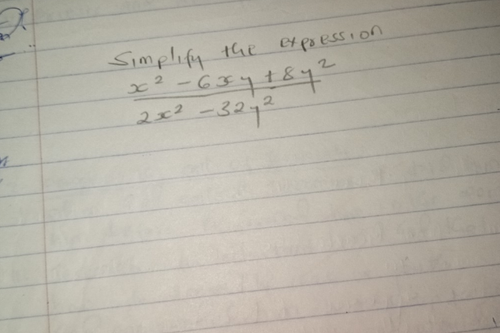 Simplify the expression
x² - 6xy + 8y²
2x² - 32y²